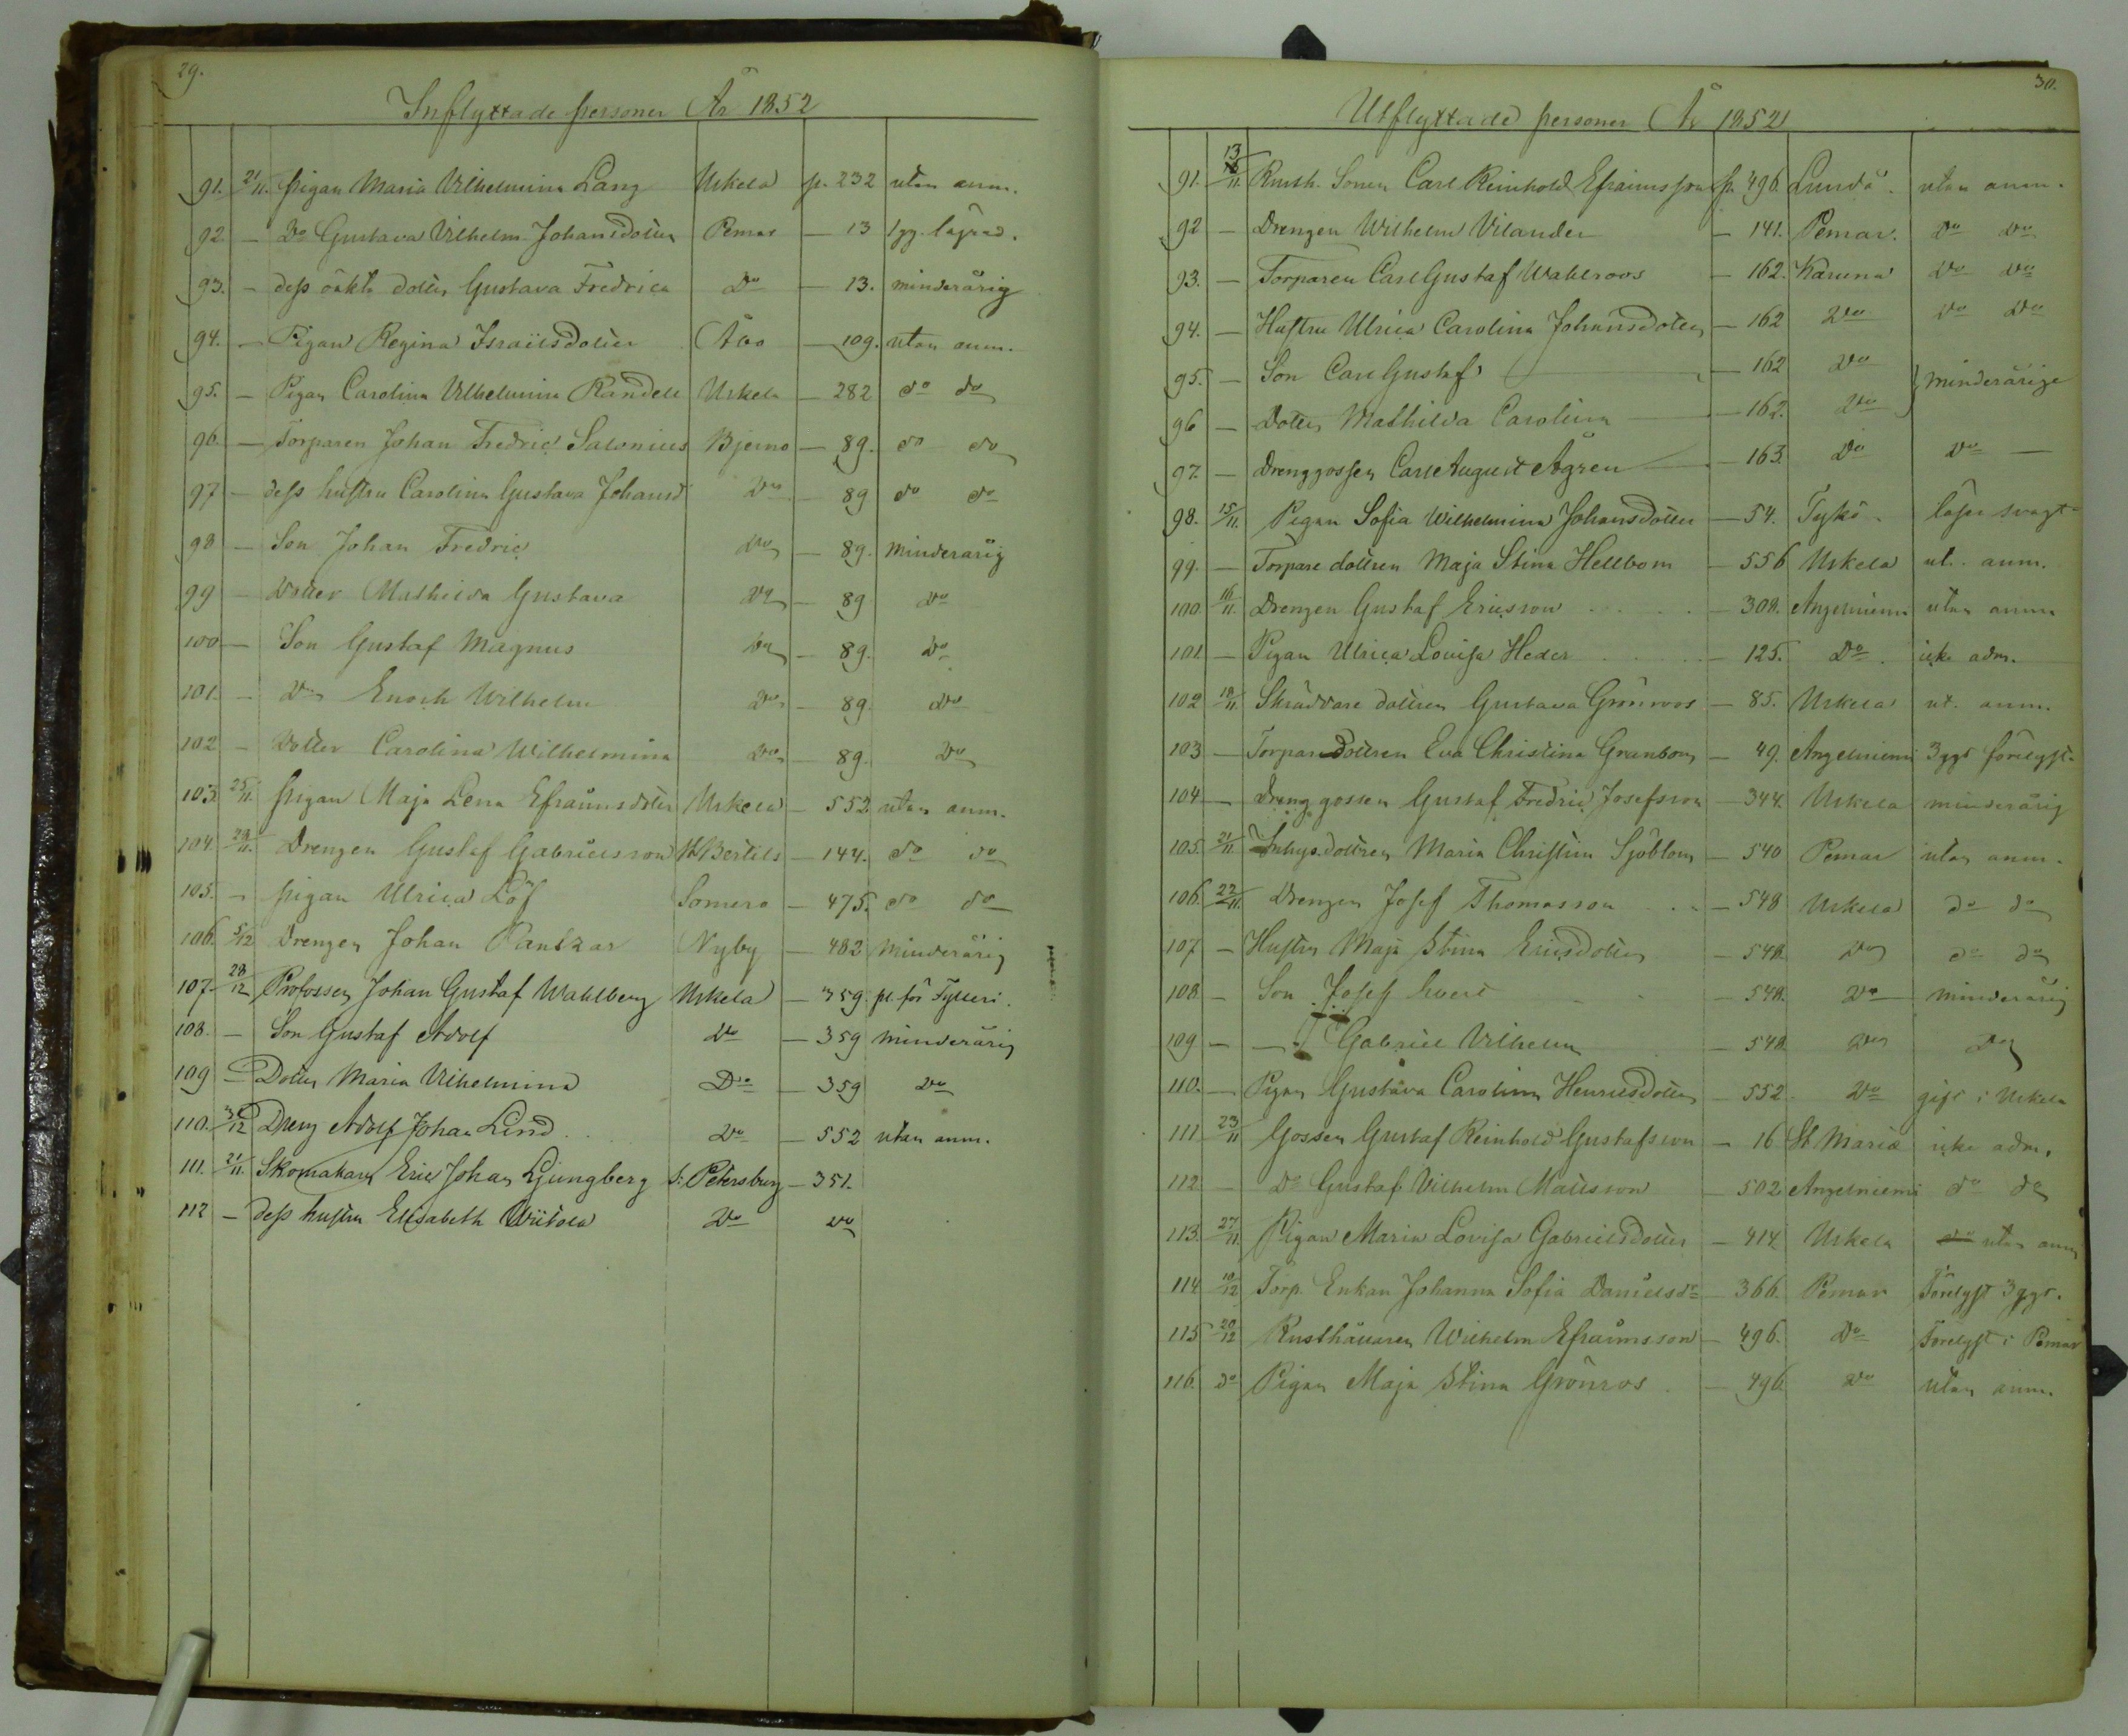 29.
Inflyttade personer År 1852
91. 21/11. pigan Maria Vilhelmina Lang Uskela p. 232 utan anm.
92 — Do Gustava Vilhelm. Johansdotter Pemar — 13 1 gg. lägrad.
93. — dess oäkta dotter Gustava Fredrica Do — 13. minderårig
94. — Pigan Regina Israelsdotter Åbo — 109. utan anm.
95. — Pigan Carolina Vilhelmina Randell Uskela — 282 do do
96 — Torparen Johan Fredric Salonius Bjerno — 89. do do
97 — dess hustru Carolina Gustava Johansd Do — 89 do do
98 — Son Johan Fredric Do — 89. minderårig
99 — Dotter Mathilda Gustava Do — 89 Do
100 — Son Gustaf Magnus Do — 89. Do
101. — Do Enoch Wilhelm Do — 89. Do
102 — Dotter Carolina Wilhelmina Do — 89. Do
103. 25/11. pigan Maja Lena Efraimsdotter Uskela — 552 utan anm.
104. 29/11. Drengen Gustaf Gabrielsson St Bertils — 144. do do
105. — pigan Ulrica Löf Somero — 475. do do
106. 5/12 Drengen Johan Pantzar Nyby — 482 minderårig
107. 28/12 Profossen Johan Gustaf Wahlberg Uskela — 359. pl. för Fylleri.
108. — Son Gustaf Adolf Do — 359 minderårig
109 — Dotter Maria Vilhelmina Do — 359 Do
110. 31/12 Dreng Adolf Johan Lind Do — 552 utan anm.
111. 21/11. Skomakare Eric Johan Ljungberg S: Petersburg — 351.
112 — dess hustru Elisabeth Wiitola Do Do
30.
Utflyttade personer År 1852
91. 13/11. Rusth. Sonen Carl Reinhold Efraimsson p. 496. Lundo. utan anm.
92 — Drengen Wilhelm Vilander — 141. Pemar. Do Do
93. — Torparen Carl Gustaf Wahlroos — 162. Karuna Do Do
94. — Hustru Ulrica Carolina Johansdotter — 162 Do Do Do
95. — Son Carl Gustaf — 162 Do } minderårige
96 — Dotter Mathilda Carolina — 162. Do
97. — Drenggossen Carl August Ågren — 163. Do Do —
98. 15/11. Pigan Sofia Wilhelmina Johansdotter — 54. Tykö. läser svagt
99. — Torpare dottren Maja Stina Hellbom — 556 Uskela ut. anm.
100. 16/11. Drengen Gustaf Ericsson — 308. Angelniemi utan anm
101. — Pigan Ulrica Lovisa Heder — 125. Do. icke adm.
102 18/11. Skräddare dottren Gustava Grönroos — 85. Uskela ut. anm.
103 — Torpare Dottren Eva Christina Granbom — 49. Angelniemi 3 ggr förelyst
104 — Dreng gossen Gustaf Fredric Josefsson — 344. Uskela minderårig
105. 21/11 Inhys. dottren Maria Christina Sjöblom — 540 Pemar utan anm.
106. 22/11. Drengen Josef Thomasson — 548 Uskela do do
107 — Hustru Maja Stina Ericsdotter — 548. Do do do
108 — Son Josef — 548. Do minderårig
109 — — Gabriel Vilhelm — 548. Do Do
110. — Pigan Gustava Carolina Henricsdotter — 552. Do gift i Uskela
111 23/11 Gossen Gustaf Reinhold Gustafsson — 16 St Mariæ icke adm.
112 — Do Gustaf Vilhelm Mattsson — 502 Angelniemi do do
113. 27/11. Pigan Maria Lovisa Gabrielsdotter — 414. Uskela utan anm
114 10/12 Torp. Enkan Johanna Sofia Danielsdr — 366. Pemar Förelyst 3 ggr.
115 20/12 Rusthållaren Wilhelm Efraimsson — 496. Do Förelyst i Pemar
116. do Pigan Maja Stina Grönros — 496 Do utan anm.